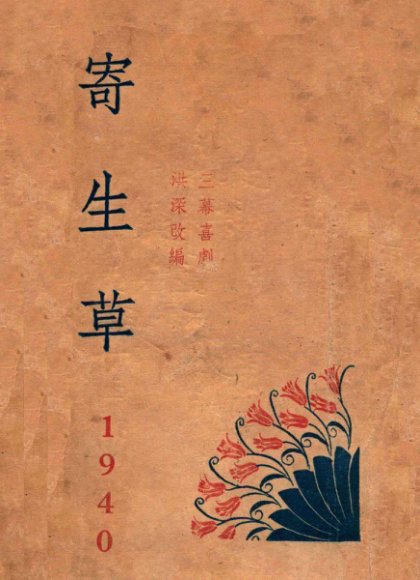 寄生草
三幕喜劇
洪深改編
1940